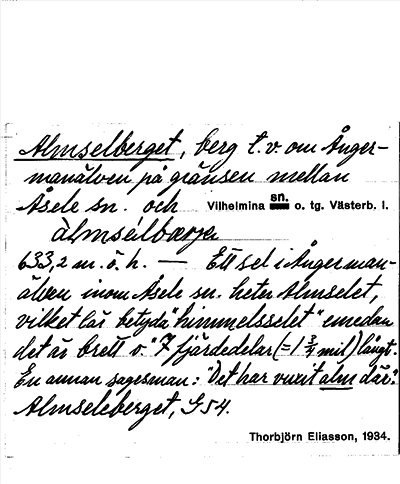 Almselberget, berg t.v. om Ånger-
manälven på gränsen mellan
Åsele sn. och Vilhelmina sn. o. tg. Västerb. l.
àlmseilbærjer
633,2 m. ö. h. — Ett sel i Ångerman-
älven inom Åsele sn. heter Almselet,
vilket lär betyda "himmelsselet" emedan
det är brett o. "7 fjärdedelar (= 1 3/4 mil) långt.
En annan sagesman: "Det har vuxit alm där".
Almseleberget, G54.
Thorbjörn Eliasson, 1934.